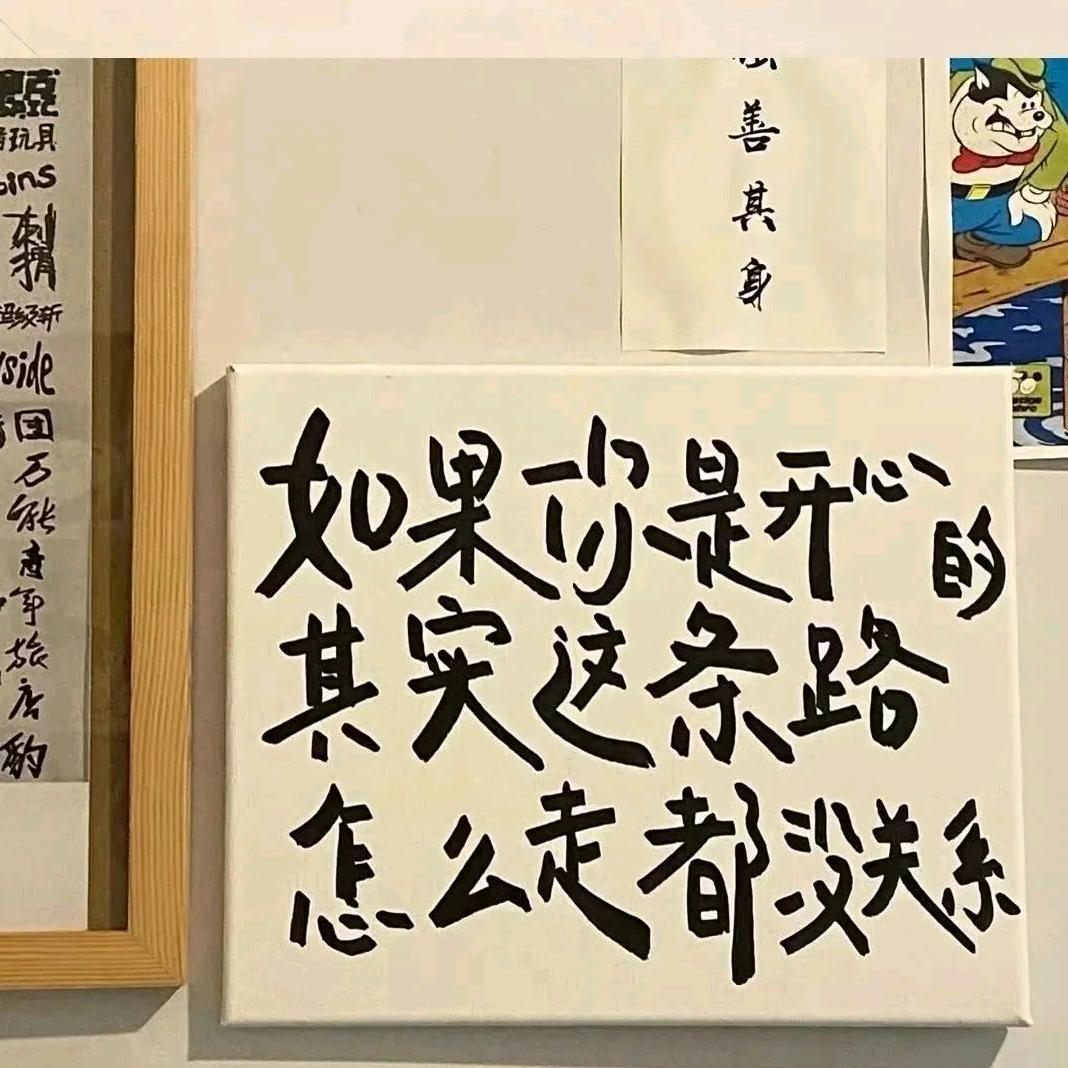 玩具
刺猬
side
团
万
能
青
年
旅
店
善
其
身
如果你是开心的
其实这条路
怎么走都没关系